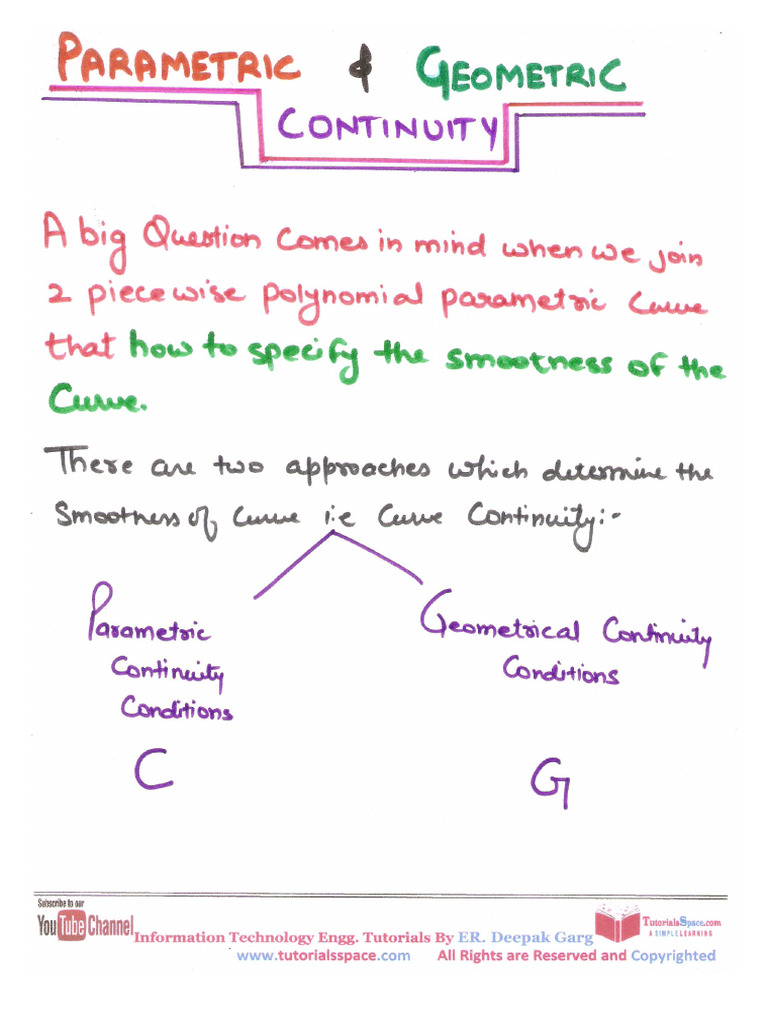 PARAMETRIC & GEOMETRIC
CONTINUITY
A big Question Comes in mind when we join
2 piecewise polynomial parametric Curve
that how to specify the smootness of the
Curve.
There are two approaches which determine the
Smootness of Curve i:e Curve Continuity:-
Parametric
Continuity
Conditions
C
Geometrical Continuity
Conditions
G
Subscribe to our
YouTube Channel
Information Technology Engg. Tutorials By ER. Deepak Garg
TutorialsSpace.com
A SIMPLE LEARNING
www.tutorialsspace.com All Rights are Reserved and Copyrighted